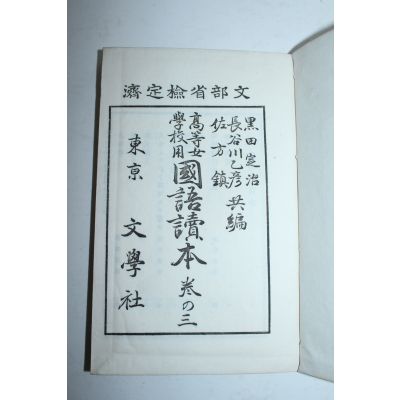 文部省檢定濟
黒田定治
長谷川乙彦
佐方鎮
共編
高等女
學校用
國語讀本 卷の三
東京 文學社